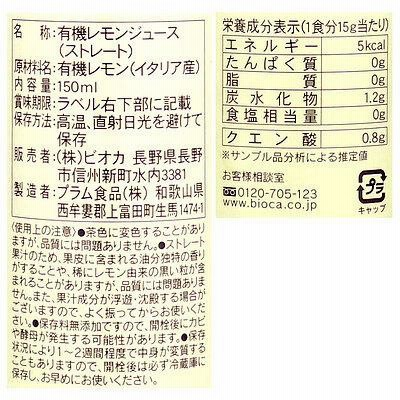 名　称:有機レモンジュース
(ストレート)
原材料名:有機レモン(イタリア産)
内容量:150ml
賞味期限:ラベル右下部に記載
保存方法:高温、直射日光を避けて
保存
販売者:(株)ビオカ 長野県長野
市信州新町水内3381
製造者:プラム食品(株) 和歌山県
西牟婁郡上富田町生馬1474-1
〈使用上の注意〉●茶色に変色することがあり
ますが、品質には問題ありません。●ストレート
果汁のため、果皮に含まれる油分独特の香り
がすることや、稀にレモン由来の黒い粒が含
まれることがありますが、品質には問題あり
ません。また、果汁成分が浮遊・沈殿する場合が
ございますので、よく振ってからお使いくださ
い。●保存料無添加ですので、開栓後にカビ
や酵母が発生する可能性があります。●保存
状況により1～2週間程度で中身が変質する
こともありますので、開栓後は必ず冷蔵庫に
保存し、お早めにお使いください。
栄養成分表示(1食分15g当たり)
エネルギー 5kcal
たんぱく質 0g
脂質 0g
炭水化物 1.2g
食塩相当量 0g
クエン酸 0.8g
※サンプル品分析による推定値
お客様相談室
0120-705-123
www.bioca.co.jp
プラ
キャップ